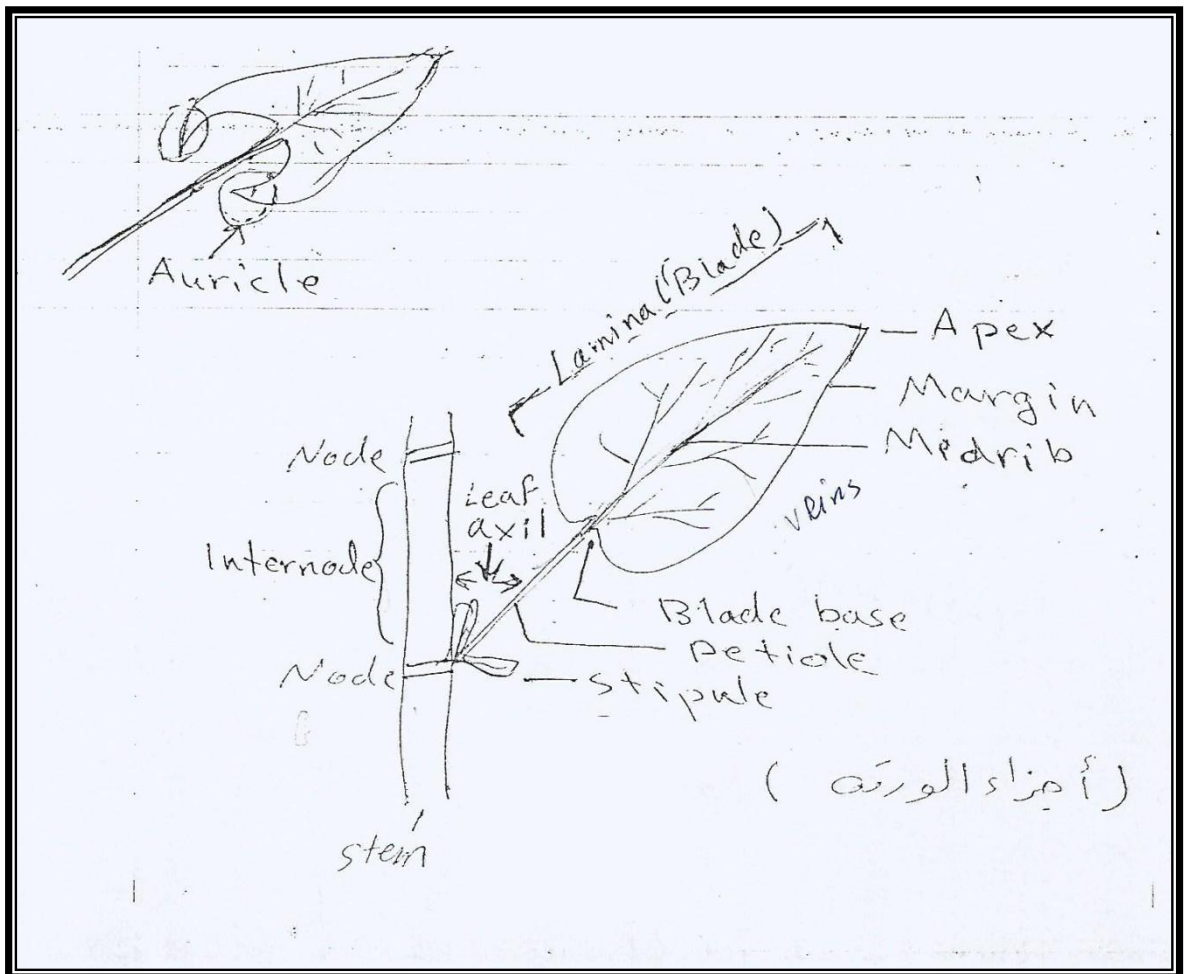 Auricle
Lamina (Blade)
Apex
Margin
Medrib
veins
Node
Leaf
axil
Internode
Blade base
Petiole
Node
Stipule
(أجزاء الورقه)
stem